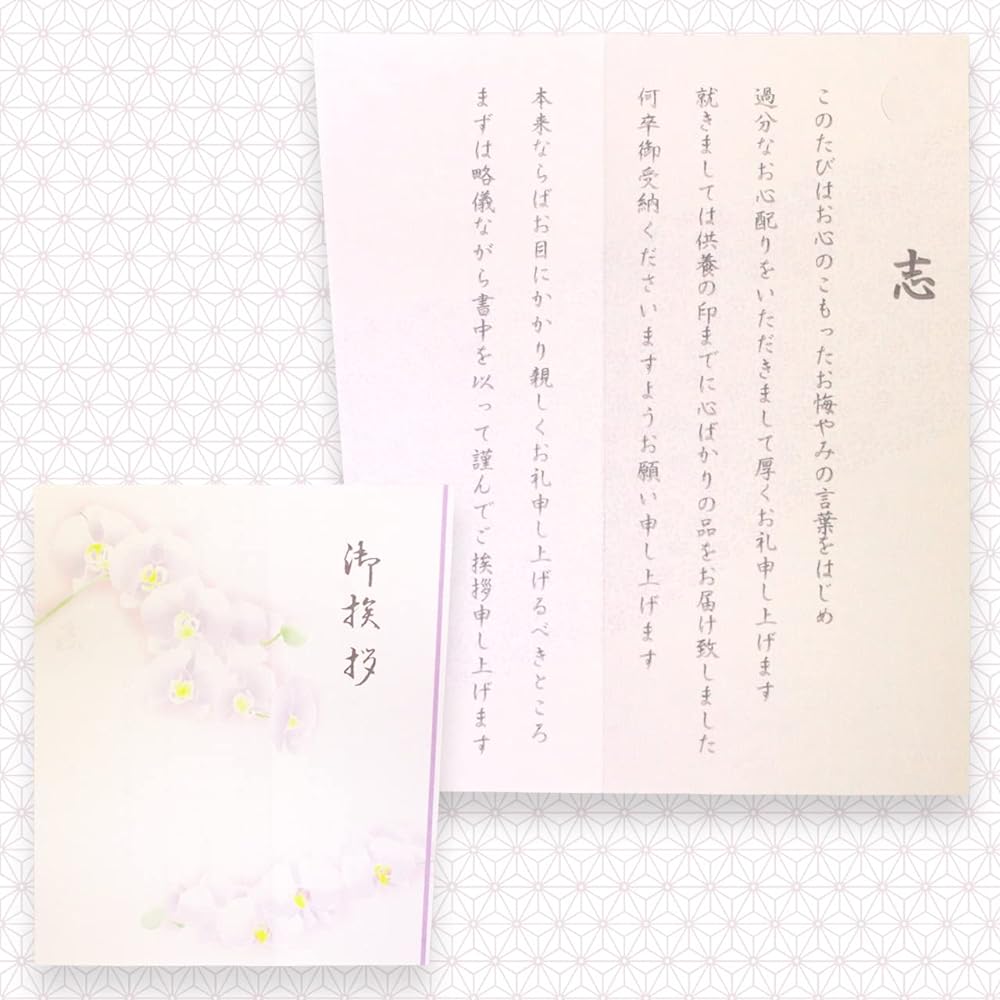 志
このたびはお心のこもったお悔やみの言葉をはじめ
過分なお心配りをいただきまして厚くお礼申し上げます
就きましては供養の印までに心ばかりの品をお届け致しました
何卒御受納くださいますようお願い申し上げます
本来ならばお目にかかり親しくお礼申し上げるべきところ
まずは略儀ながら書中を以って謹んでご挨拶申し上げます
御挨拶